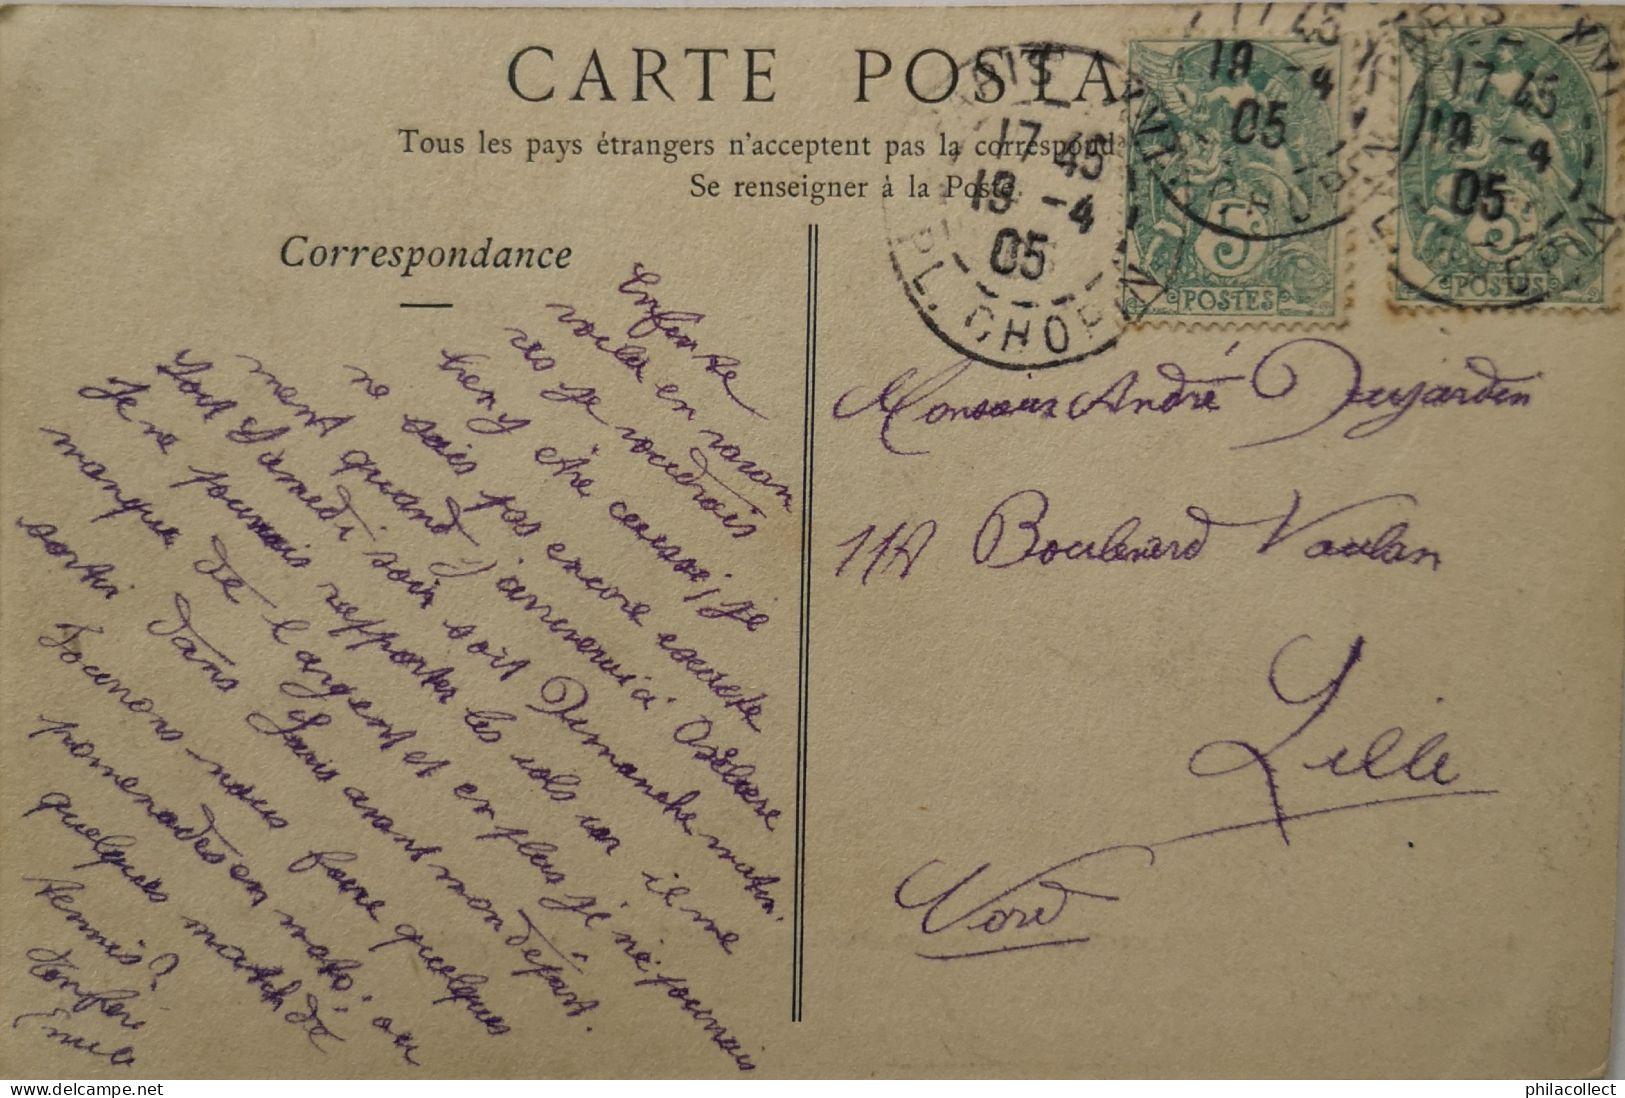 CARTE POSTA
Tous les pays étrangers n'acceptent pas la correspond
Se renseigner à la Poste.
Correspondance
Enfin te
voila en vacan
ces je voudrais
bien y être aussi, je
ne sais pas encore
ment quand j'arriverai à
soit Samedi soir soit Dimanche matin.
Je ne pourrais rapporter les cols car il me
manque de l'argent et en plus je ne pourrais
sortir dans Paris avant mon départ.
Pourrons-nous faire quelques
promenades en moto, ou
quelques match de
tennis?
Ton frère
Emile
Monsieur André Dujardin
11A Boulevard Vauban
Lille
Nord
17 45
19 -4
05
PL. CHOPIN
17 45
19 -4
05
PARIS XVI
17 45
19 -4
05
5
POSTES
5
POSTES
philacollect